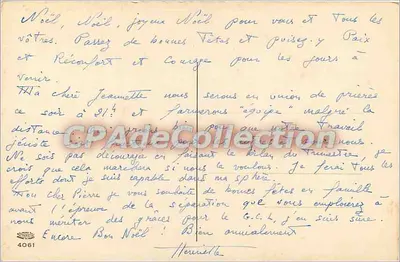 Noël, Noël, joyeux Noël pour vous et tous les
vôtres. Passez de bonnes fêtes et puisez-y Paix
et Réconfort et Courage pour les jours à
venir.
Ma chère Jeannette nous serons en union de prières
ce soir à 21h et formerons "équipe" malgré la
distance pour que travail
CPAdeCollection
nous.
Ne sois pas découragée en faisant le bilan du trimestre, je
crois que cela marchera si nous le voulons. Je ferai tous les
efforts dont je suis capable dans ma sphère.
Mon cher Pierre je vous souhaite de bonnes fêtes en famille
avant l'épreuve de la séparation que vous emploierez à
nous mériter des grâces pour le j'en suis sûre.
Encore Bon Noël ! Bien amicalement
Henriette
4061